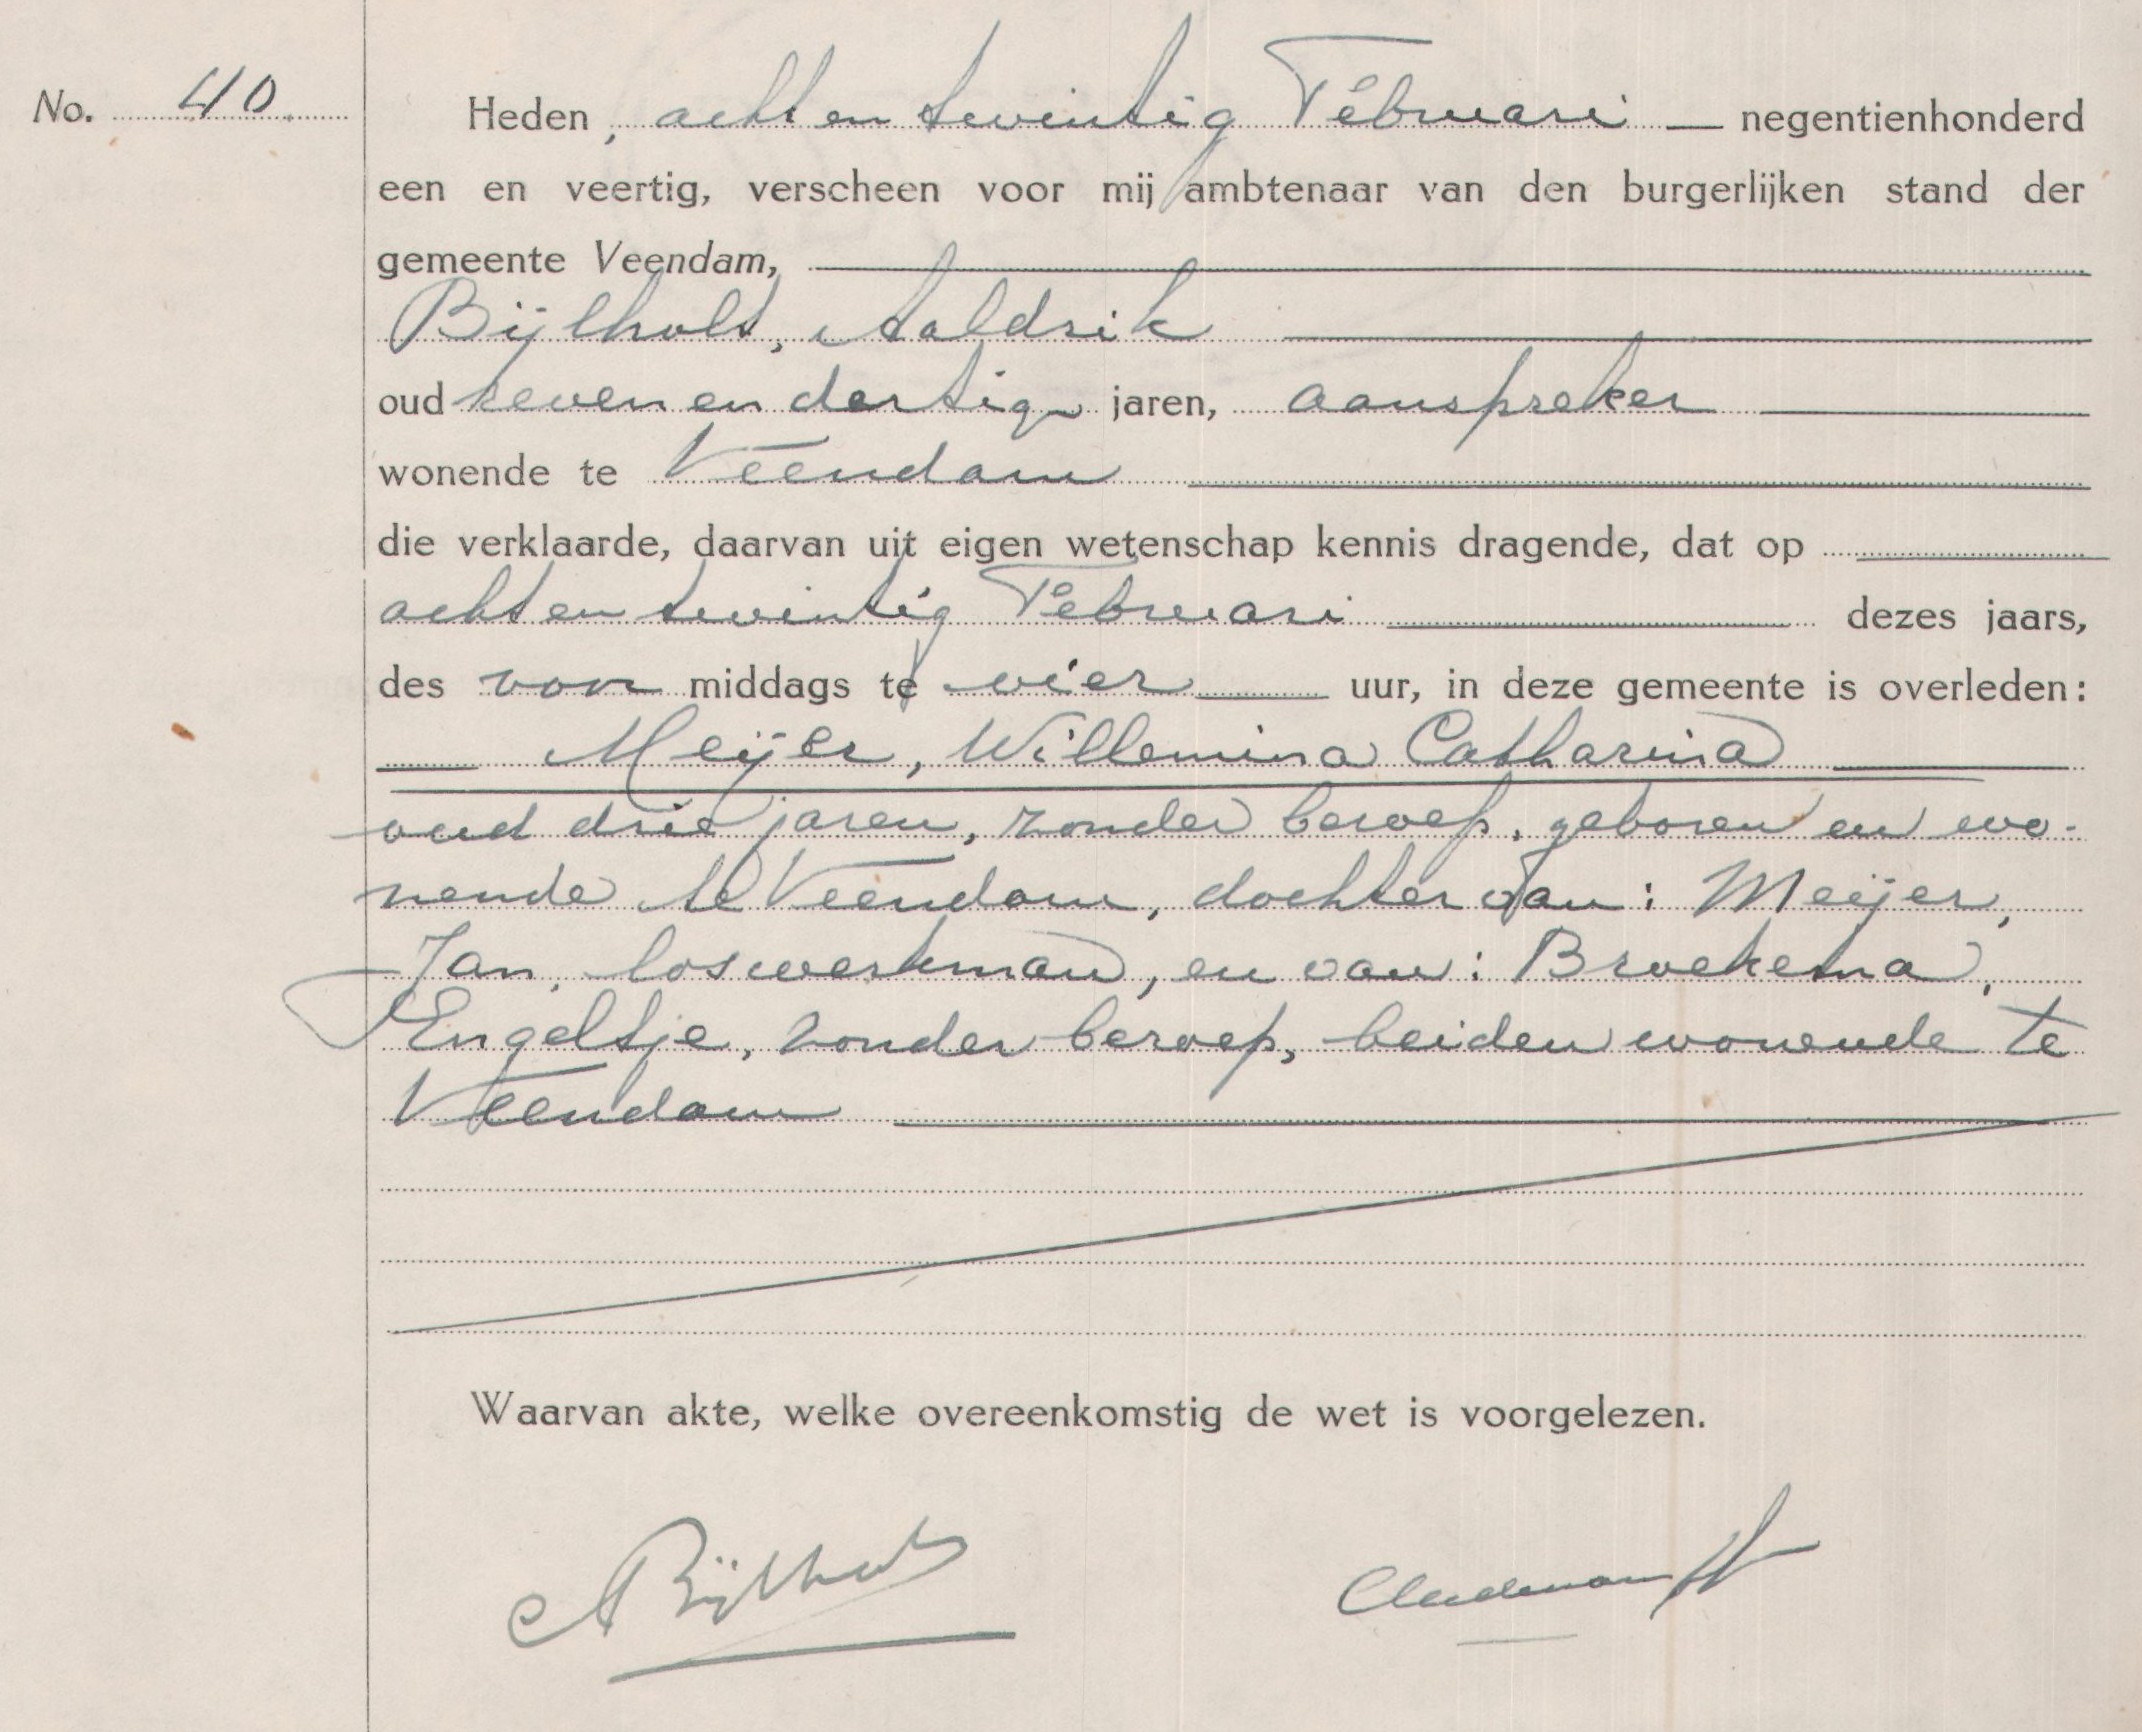 No. 40
Heden, acht en twintig Februari — negentienhonderd
een en veertig, verscheen voor mij ambtenaar van den burgerlijken stand der
gemeente Veendam,
Bijlholt, Aaldrik
oud zeven en dertig jaren, aanspreker
wonende te Veendam
die verklaarde, daarvan uit eigen wetenschap kennis dragende, dat op
acht en twintig Februari dezes jaars,
des voor middags te vier uur, in deze gemeente is overleden:
Meijer, Willemina Catharina
oud drie jaren, zonder beroep, geboren en wo-
nende te Veendam, dochter van: Meijer,
Jan, loswerkman, en van: Broekema,
Engeltje, zonder beroep, beiden wonende te
Veendam
Waarvan akte, welke overeenkomstig de wet is voorgelezen.
ABijlholt